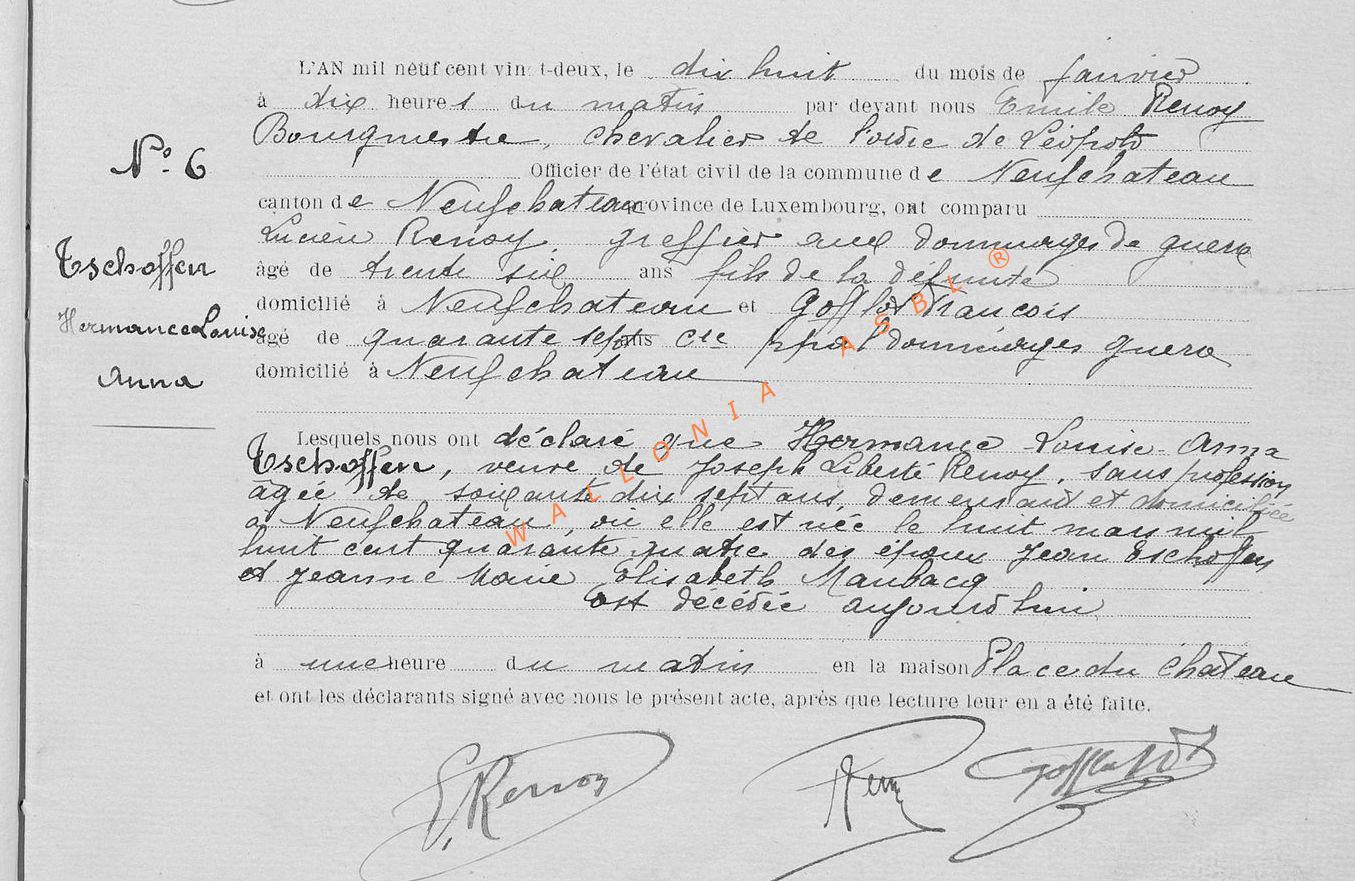 L'AN mil neuf cent vingt-deux, le dix huit du mois de janvier
à dix heures du matin par devant nous Emile Renoy
Bourgmestre, chevalier de l'ordre de Léopold
N° 6
Officier de l'état civil de la commune de Neufchateau
canton de Neufchateau province de Luxembourg, ont comparu
Lucien Renoy, greffier aux dommages de guerre
Tschoffen
âgé de trente six ans fils de la défunte
domicilié à Neufchateau et François
Hermance Louise
âgé de quarante sept ans dommages guerre
Anna
domicilié à Neufchateau
Lesquels nous ont déclaré que Hermance Louise Anna
Tschoffen, veuve de Joseph Liberté Renoy, sans profession
âgée de soixante dix sept ans, demeurant et domiciliée
à Neufchateau, où elle est née le huit mars mil
huit cent quarante quatre des époux Jean Tschoffen
et Jeanne Marie Elisabeth Maubacq
est décédée aujourd'hui
à une heure du matin en la maison Place du Château
et ont les déclarants signé avec nous le présent acte, après que lecture leur en a été faite.
E. Renoy
WALLONIA ASBL ®